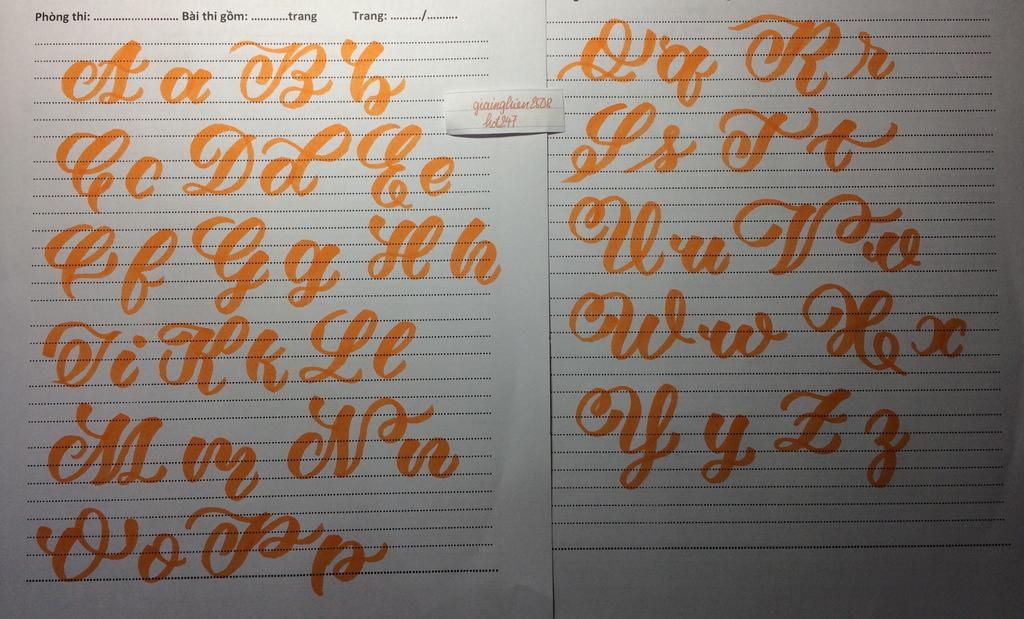 Phòng thi: ............................ Bài thi gồm: ............trang Trang: ........../..........
A a B b
C c D d E e
F f G g H h
I i K k L l
M m N n
O o P p
giainghien2508
hd247
Q q R r
S s T t
U u V v
W w X x
Y y Z z